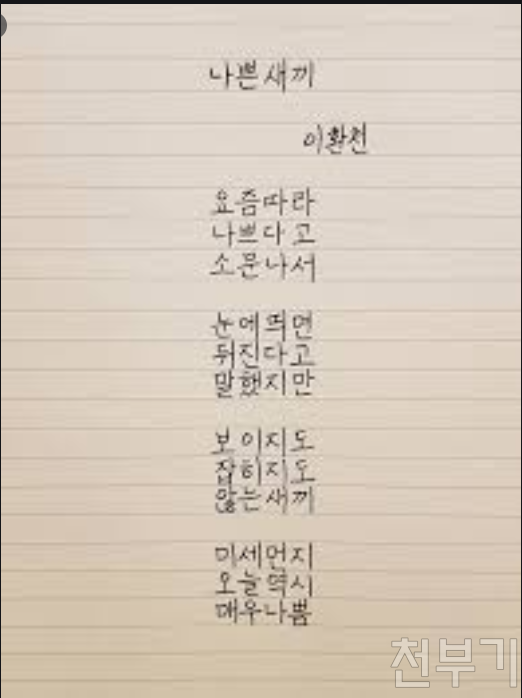 나쁜새끼
이환천
요즘따라
나쁘다고
소문나서
눈에띄면
뒤진다고
말했지만
보이지도
잡히지도
않는새끼
미세먼지
오늘역시
매우나쁨
천부기